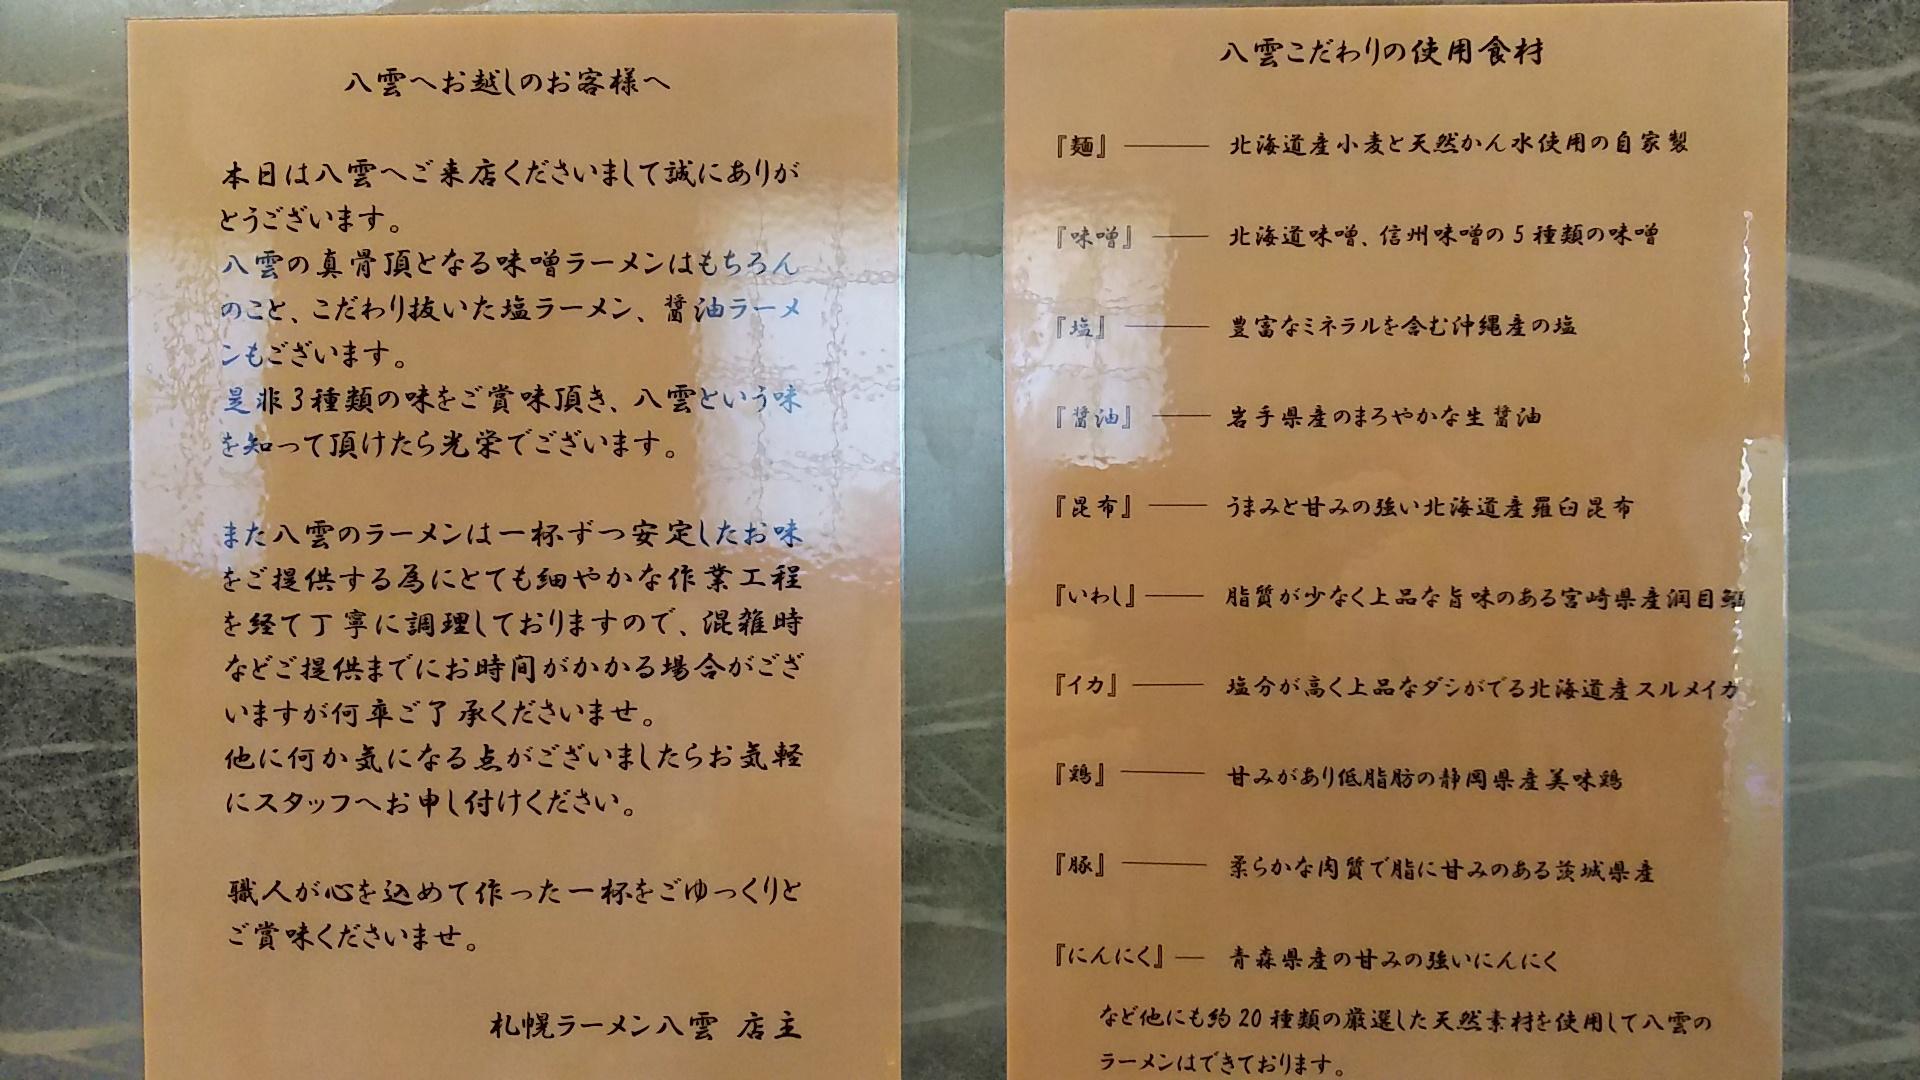 八雲へお越しのお客様へ
本日は八雲へご来店くださいまして誠にありが
とうございます。
八雲の真骨頂となる味噌ラーメンはもちろん
のこと、こだわり抜いた塩ラーメン、醤油ラーメ
ンもございます。
是非3種類の味をご賞味頂き、八雲という味
を知って頂けたら光栄でございます。
また八雲のラーメンは一杯ずつ安定したお味
をご提供する為にとても細やかな作業工程
を経て丁寧に調理しておりますので、混雑時
などご提供までにお時間がかかる場合がござ
いますが何卒ご了承くださいませ。
他に何か気になる点がございましたらお気軽
にスタッフへお申し付けください。
職人が心を込めて作った一杯をごゆっくりと
ご賞味くださいませ。
札幌ラーメン八雲 店主
八雲こだわりの使用食材
『麺』 ―― 北海道産小麦と天然かん水使用の自家製
『味噌』 ―― 北海道味噌、信州味噌の5種類の味噌
『塩』 ―― 豊富なミネラルを含む沖縄産の塩
『醤油』 ―― 岩手県産のまろやかな生醤油
『昆布』 ―― うまみと甘みの強い北海道産羅臼昆布
『いわし』 ―― 脂質が少なく上品な旨味のある宮崎県産潤目鰯
『イカ』 ―― 塩分が高く上品なダシがでる北海道産スルメイカ
『鶏』 ―― 甘みがあり低脂肪の静岡県産美味鶏
『豚』 ―― 柔らかな肉質で脂に甘みのある茨城県産
『にんにく』 ― 青森県産の甘みの強いにんにく
など他にも約20種類の厳選した天然素材を使用して八雲の
ラーメンはできております。